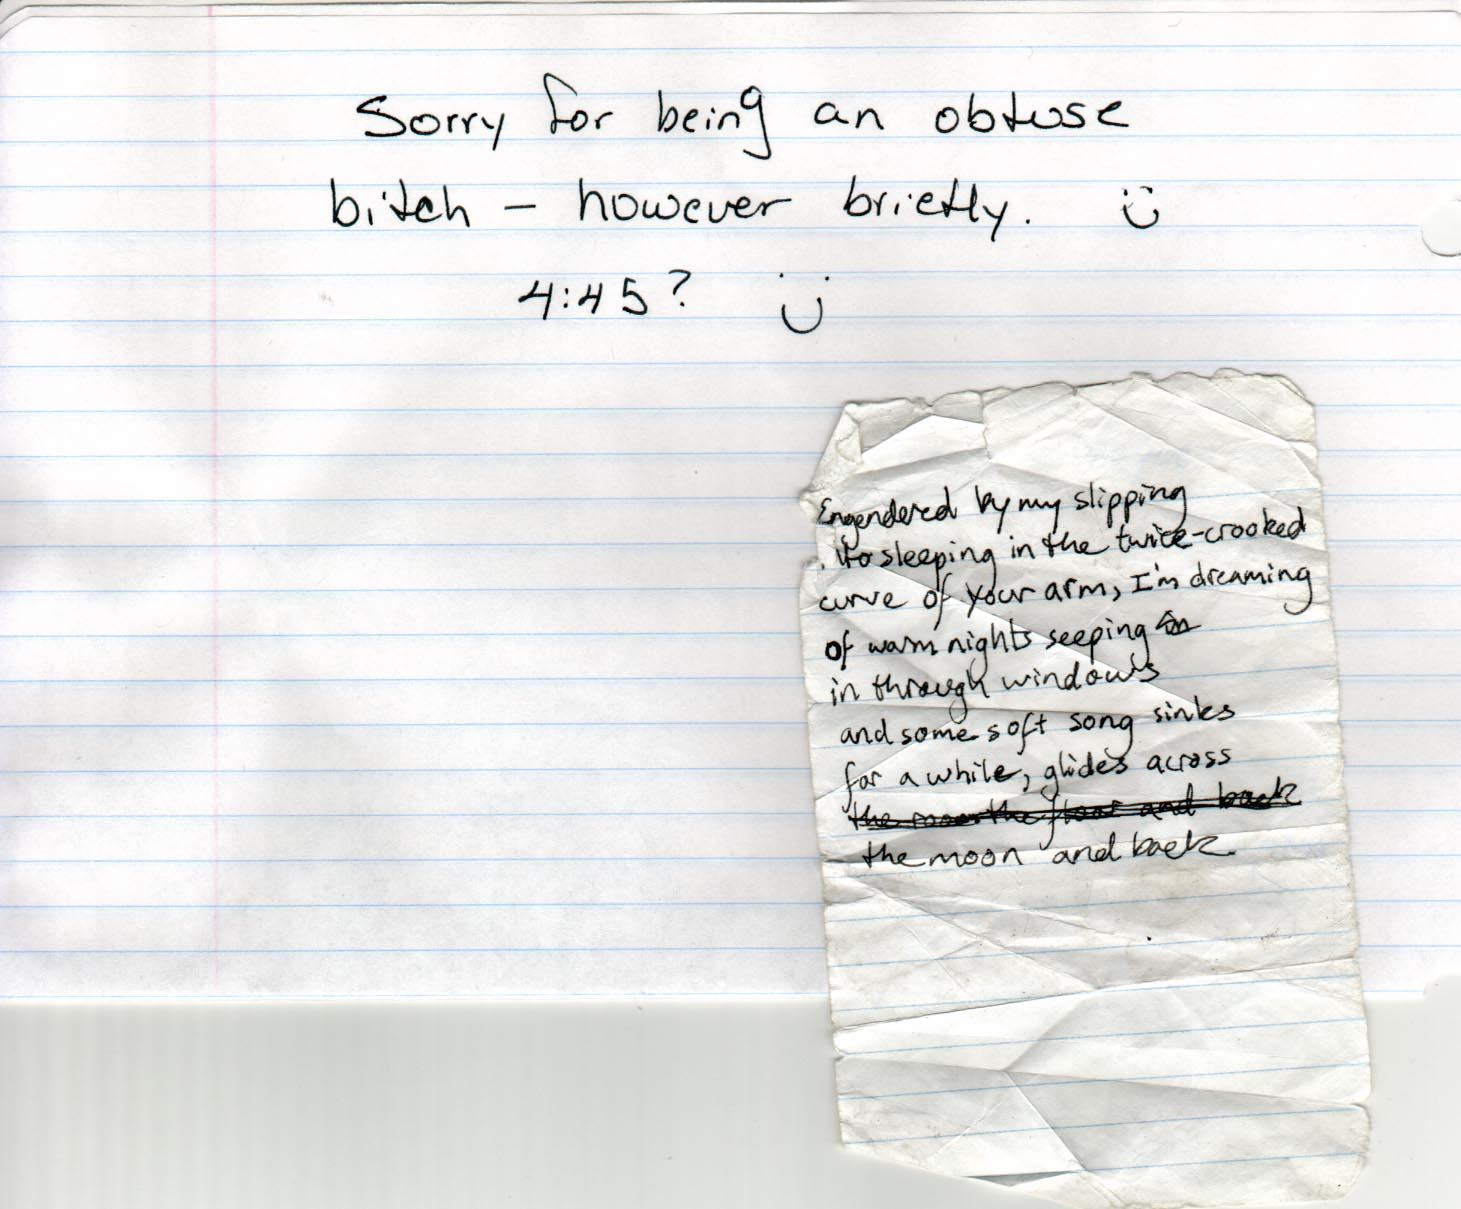 Sorry for being an obtuse
bitch – however briefly. :)
4:45? :)
Engendered by my slipping
to sleeping in the twice-crooked
curve of your arm, I'm dreaming
of warm nights seeping in
in through windows
and some soft song sinks
for a while, glides across
the the floor and back
the moon and back